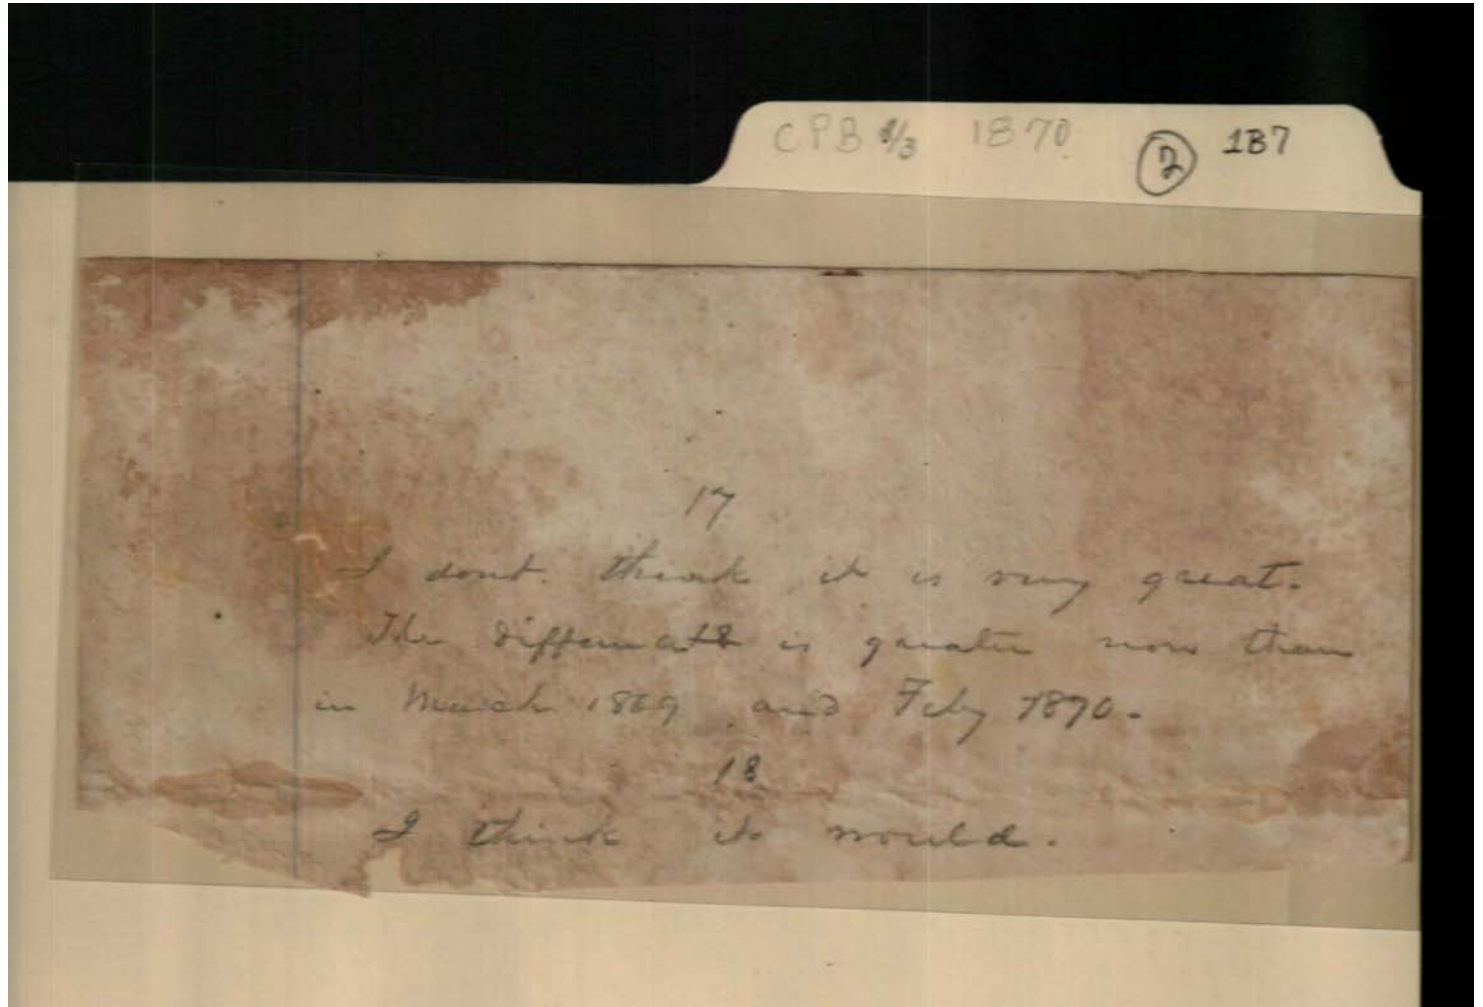 CPB 8/3 1870 2 1B7
17
I dont. think it is very great.
The difference is greater now than
in March 1869 and Feby 1870.
18
I think it would.